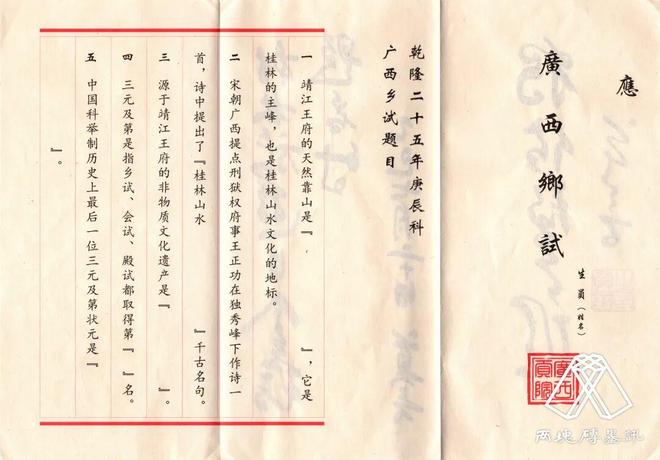 應
廣西鄉試
生員(姓名)
廣西貢院
乾隆二十五年庚辰科
广西乡试题目
一 靖江王府的天然靠山是『 』,它是
桂林的主峰,也是桂林山水文化的地标。
二 宋朝广西提点刑狱权府事王正功在独秀峰下作诗一
首,诗中提出了『桂林山水 』千古名句。
三 源于靖江王府的非物质文化遗产是『 』。
四 三元及第是指乡试、会试、殿试都取得第『 』名。
五 中国科举制历史上最后一位三元及第状元是『
』。